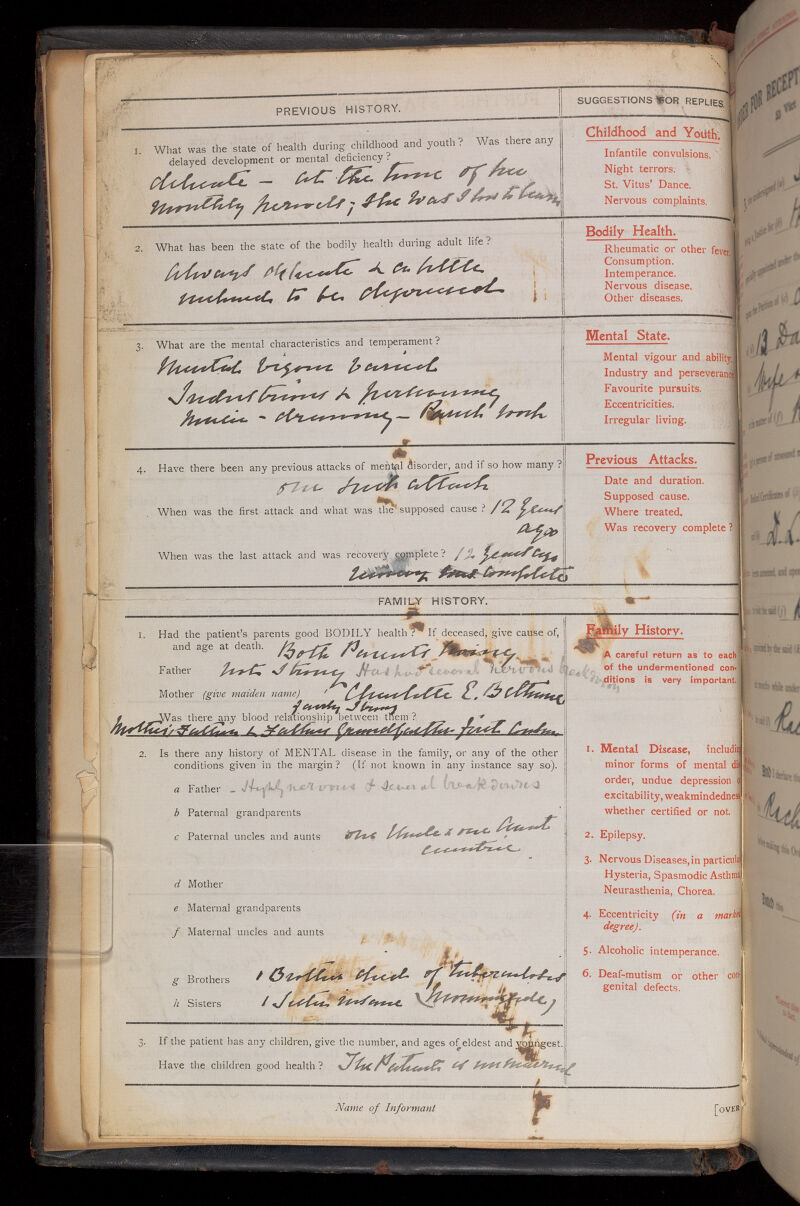 PREVIOUS HISTORY.
SUGGESTIONS FOR REPLIES.
1. What was the state of health during childhood and youth? Was there any
delayed development or mental deficiency?
delicate — at the time of her
monthly periods; She was
Childhood and Youth.
Infantile convulsions.
Night terrors.
St. Vitus' Dance.
Nervous complaints.
2. What has been the state of the bodily health during adult life?
Always delicate & a little
inclined to be depressed
Bodily Health.
Rheumatic or other fever.
Consumption.
Intemperance.
Nervous disease.
Other diseases.
3. What are the mental characteristics and temperament?
Mental vigour varied
Industrious &
Music - drawing - Parish work
Mental State.
Mental vigour and ability.
Industry and perseverance
Favourite pursuits.
Eccentricities.
Irregular living.
4. Have there been any previous attacks of mental disorder, and if so how many?
one such attack
When was the first attack and what was the supposed cause? 12 years
ago
When was the last attack and was recovery complete? 12 years ago
recovery was complete
Previous Attacks.
Date and duration.
Supposed cause.
Where treated.
Was recovery complete?
FAMILY HISTORY.
1. Had the patient's parents good BODILY health? If deceased, give cause of,
and age at death. Both Parents living
Father not strong Has had several nervous breakdown
Mother (give maiden name) Charlotte E. Beltune
fairly strong
Was there any blood relationship between them?
Mother's Father & Father's Grandfather first Cousins
Family History.
A careful return as to each
of the undermentioned con-
ditions is very important.
2. Is there any history of MENTAL disease in the family, or any of the other
conditions given in the margin? (If not known in any instance say so).
a Father - Highly nervous & several breakdowns
b Paternal grandparents
c Paternal uncles and aunts one Uncle & one Aunt
eccentric
d Mother
e Maternal grandparents
f Maternal uncles and aunts
g Brothers 1 Brother died of tuberculosis
h Sisters 1 Sister insane (Morningside)
1. Mental Disease, including
minor forms of mental dis
order, undue depression o
excitability, weakmindedness
whether certified or not.
2. Epilepsy.
3. Nervous Diseases, in particular
Hysteria, Spasmodic Asthma
Neurasthenia, Chorea.
4. Eccentricity (in a marked
degree).
5. Alcoholic intemperance.
6. Deaf-mutism or other con-
genital defects.
3. If the patient has any children, give the number, and ages of eldest and youngest.
Have the children good health? The Patient is unmarried
Name of Informant
[OVER